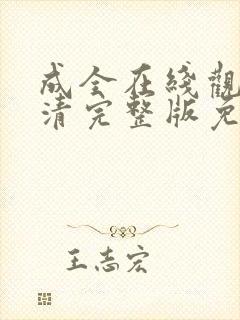 成全在綫觀
清完整版免
王志宏